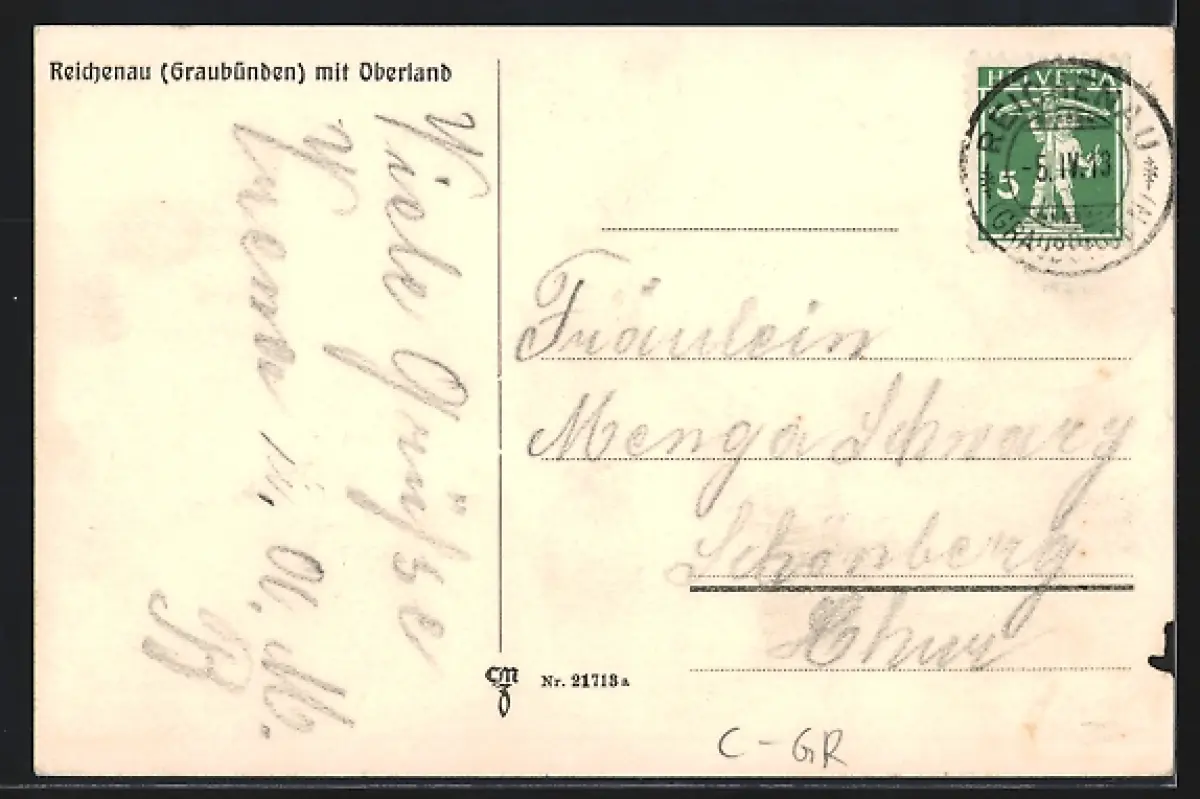 Reichenau (Graubünden) mit Oberland
HELVETIA
5
REICHENAU
-5.IV.13
(GRAUBÜNDEN)
Viele Grüsse
v
Fräulein
Menga Schwarz
Schönberg
Chur
CM
Nr. 21713a
C-GR